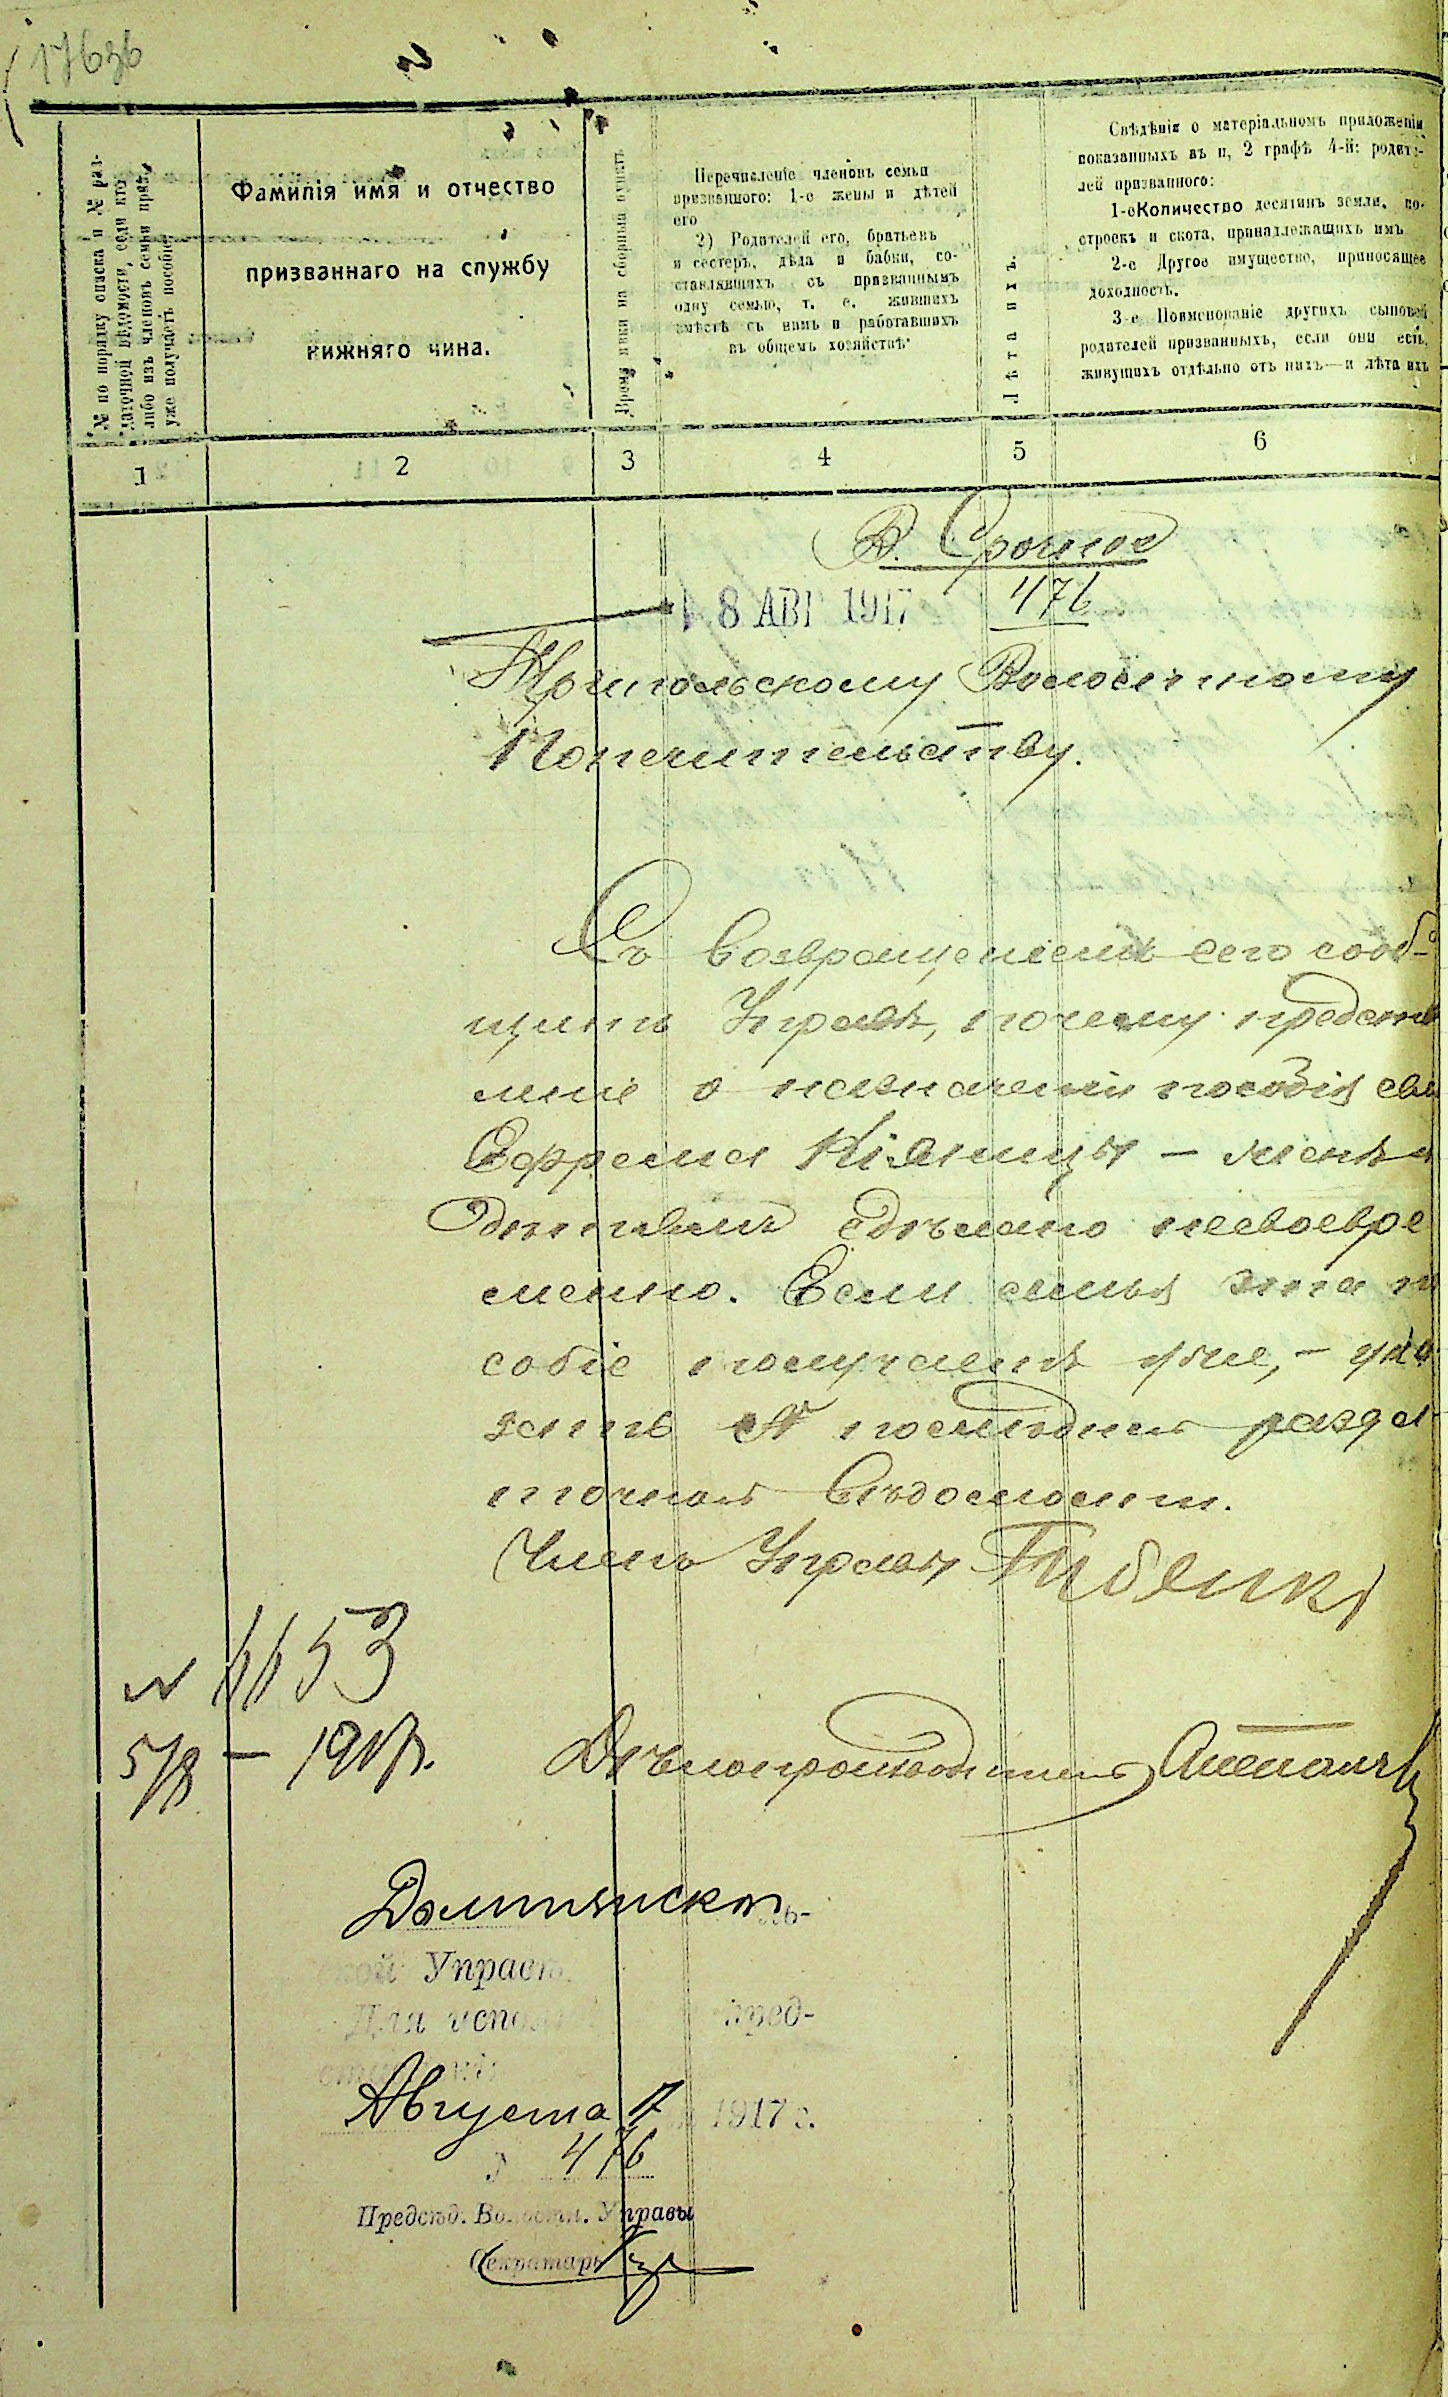 17636
№ по порядку списка и № раз-
даточной вѣдомости, если кто
либо изъ членовъ семьи приз.
уже получаетъ пособіе.
Фамилія имя и отчество
призваннаго на службу
нижняго чина.
Время явки на сборный пунктъ
Перечисленіе членовъ семьи
призваннаго: 1-е жены и дѣтей
его
2) Родителей его, братьевъ
и сестеръ, дѣда и бабки, со-
ставлявшихъ съ призваннымъ
одну семью, т. е. жившихъ
вмѣстѣ съ нимъ и работавшихъ
въ общемъ хозяйствѣ
Лѣта ихъ.
Свѣдѣнія о матеріальномъ приложеніи
показанныхъ въ п, 2 графѣ 4-й: родите-
лей призваннаго:
1-еКоличество десятинъ земли, по-
строекъ и скота, принадлежащихъ имъ
2-е Другое имущество, приносящее
доходность.
3-е Поименованіе другихъ сыновей
родителей призванныхъ, если они есть,
живущихъ отдѣльно отъ нихъ—и лѣта ихъ
1 2 3 4 5 6
В. Срочное
8 АВГ 1917 476
Трипольскому Волостному
Попечительству.
Съ возвращеніемъ сего сооб-
щить Управѣ, почему представ
леніе о назначеніи пособія сем
Ефрема Кіяницы – женѣ и
дѣтямъ сдѣлано несвоевре
менно. Если семья эта по
собіе получаетъ уже, – ука
зать № послѣдней разда-
точной вѣдомости.
Членъ Управы Губенко
№ 6653
5/8 – 1917г.
Дѣлопроизводитель
ской Управѣ
Для испол пред-
Августа 17 1917 г.
476
Предсѣд. Волостн. Управы
Секретарь